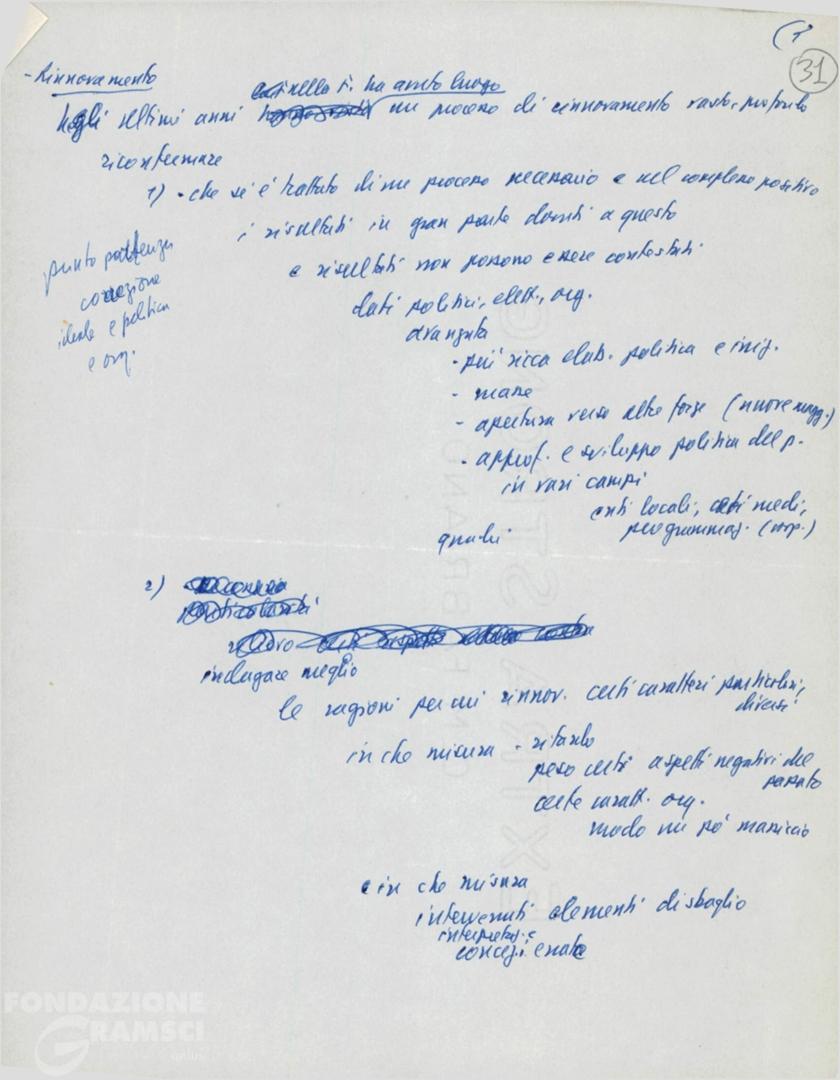 31
- Rinnovamento
nella s. ha avuto luogo
Negli ultimi anni un processo di rinnovamento vasto, profondo
riconfermare
1) - che si è trattato di un processo necessario e nel complesso positivo
i risultati in gran parte dovuti a questo
e risultati non possono essere contestati
dati politici, elett., org.
avanzata
- più ricca elab. politica e iniz.
- masse
- apertura verso altre forze (nuove magg.)
- approf. e sviluppo politica del p.
in vari campi
enti locali, ceti medi,
programmaz. (coop.)
quali
punto partenza
correzione
ideale e politica
e org.
2)
indagare meglio
le ragioni per cui rinnov. certi caratteri particolari,
diversi
in che misura - ritardo
peso certi aspetti negativi del
passato
certe caratt. org.
modo un po' massiccio
e in che misura
intervenuti elementi di sbaglio
interpretaz. e
concez. errate
FONDAZIONE
GRAMSCI
onlus